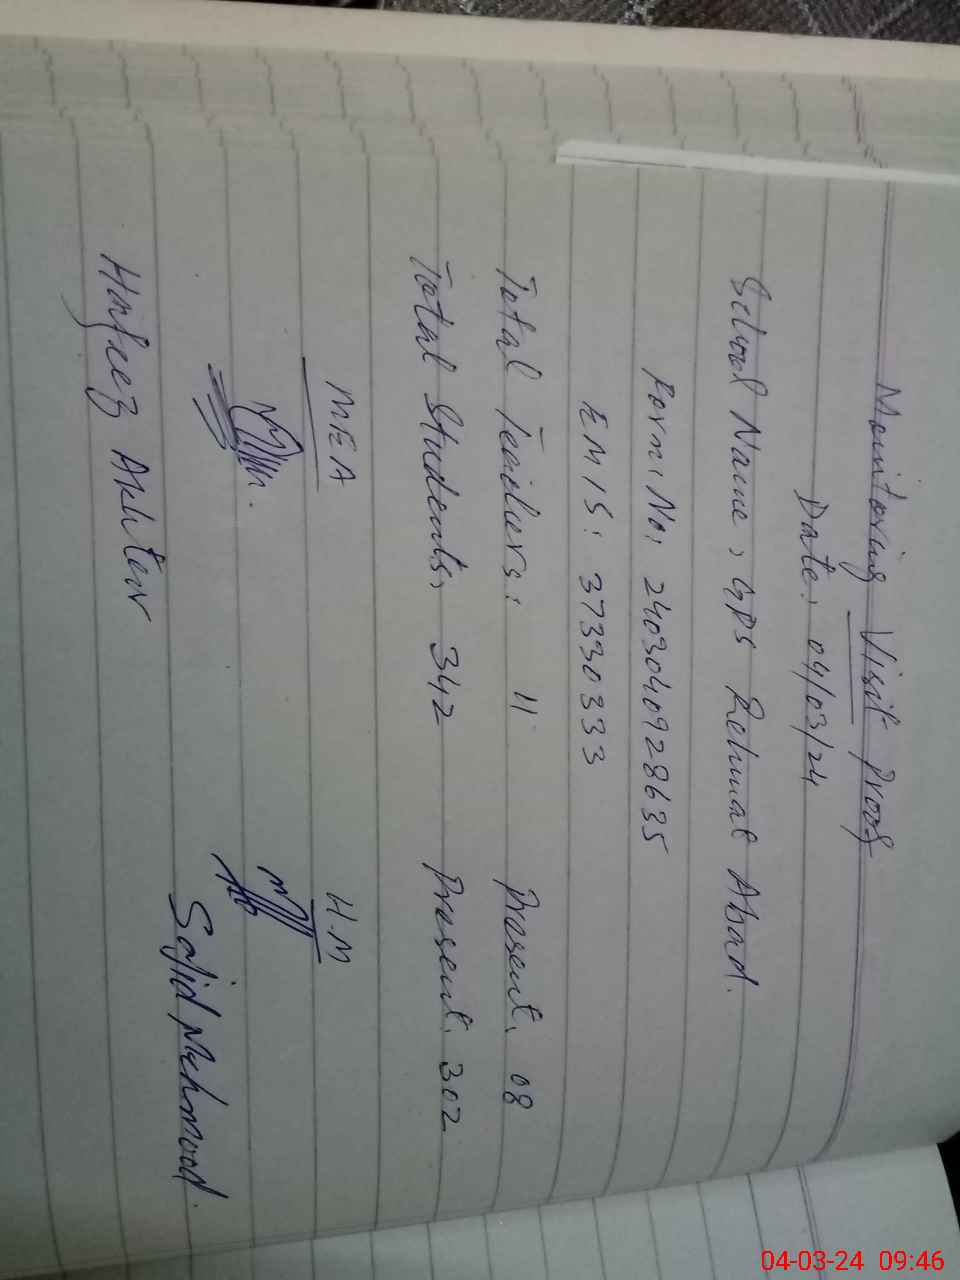 Monitoring Visit Proof
Date: 04/03/24
School Name: GPS Rehmat Abad.
Form No: 2403040928635
EMIS: 37330333
Total Teachers: 11 Present: 08
Total Students: 342 Present: 302
MEA H.M
Sajid Mehmood
Hafeez Akhter
04-03-24 09:46